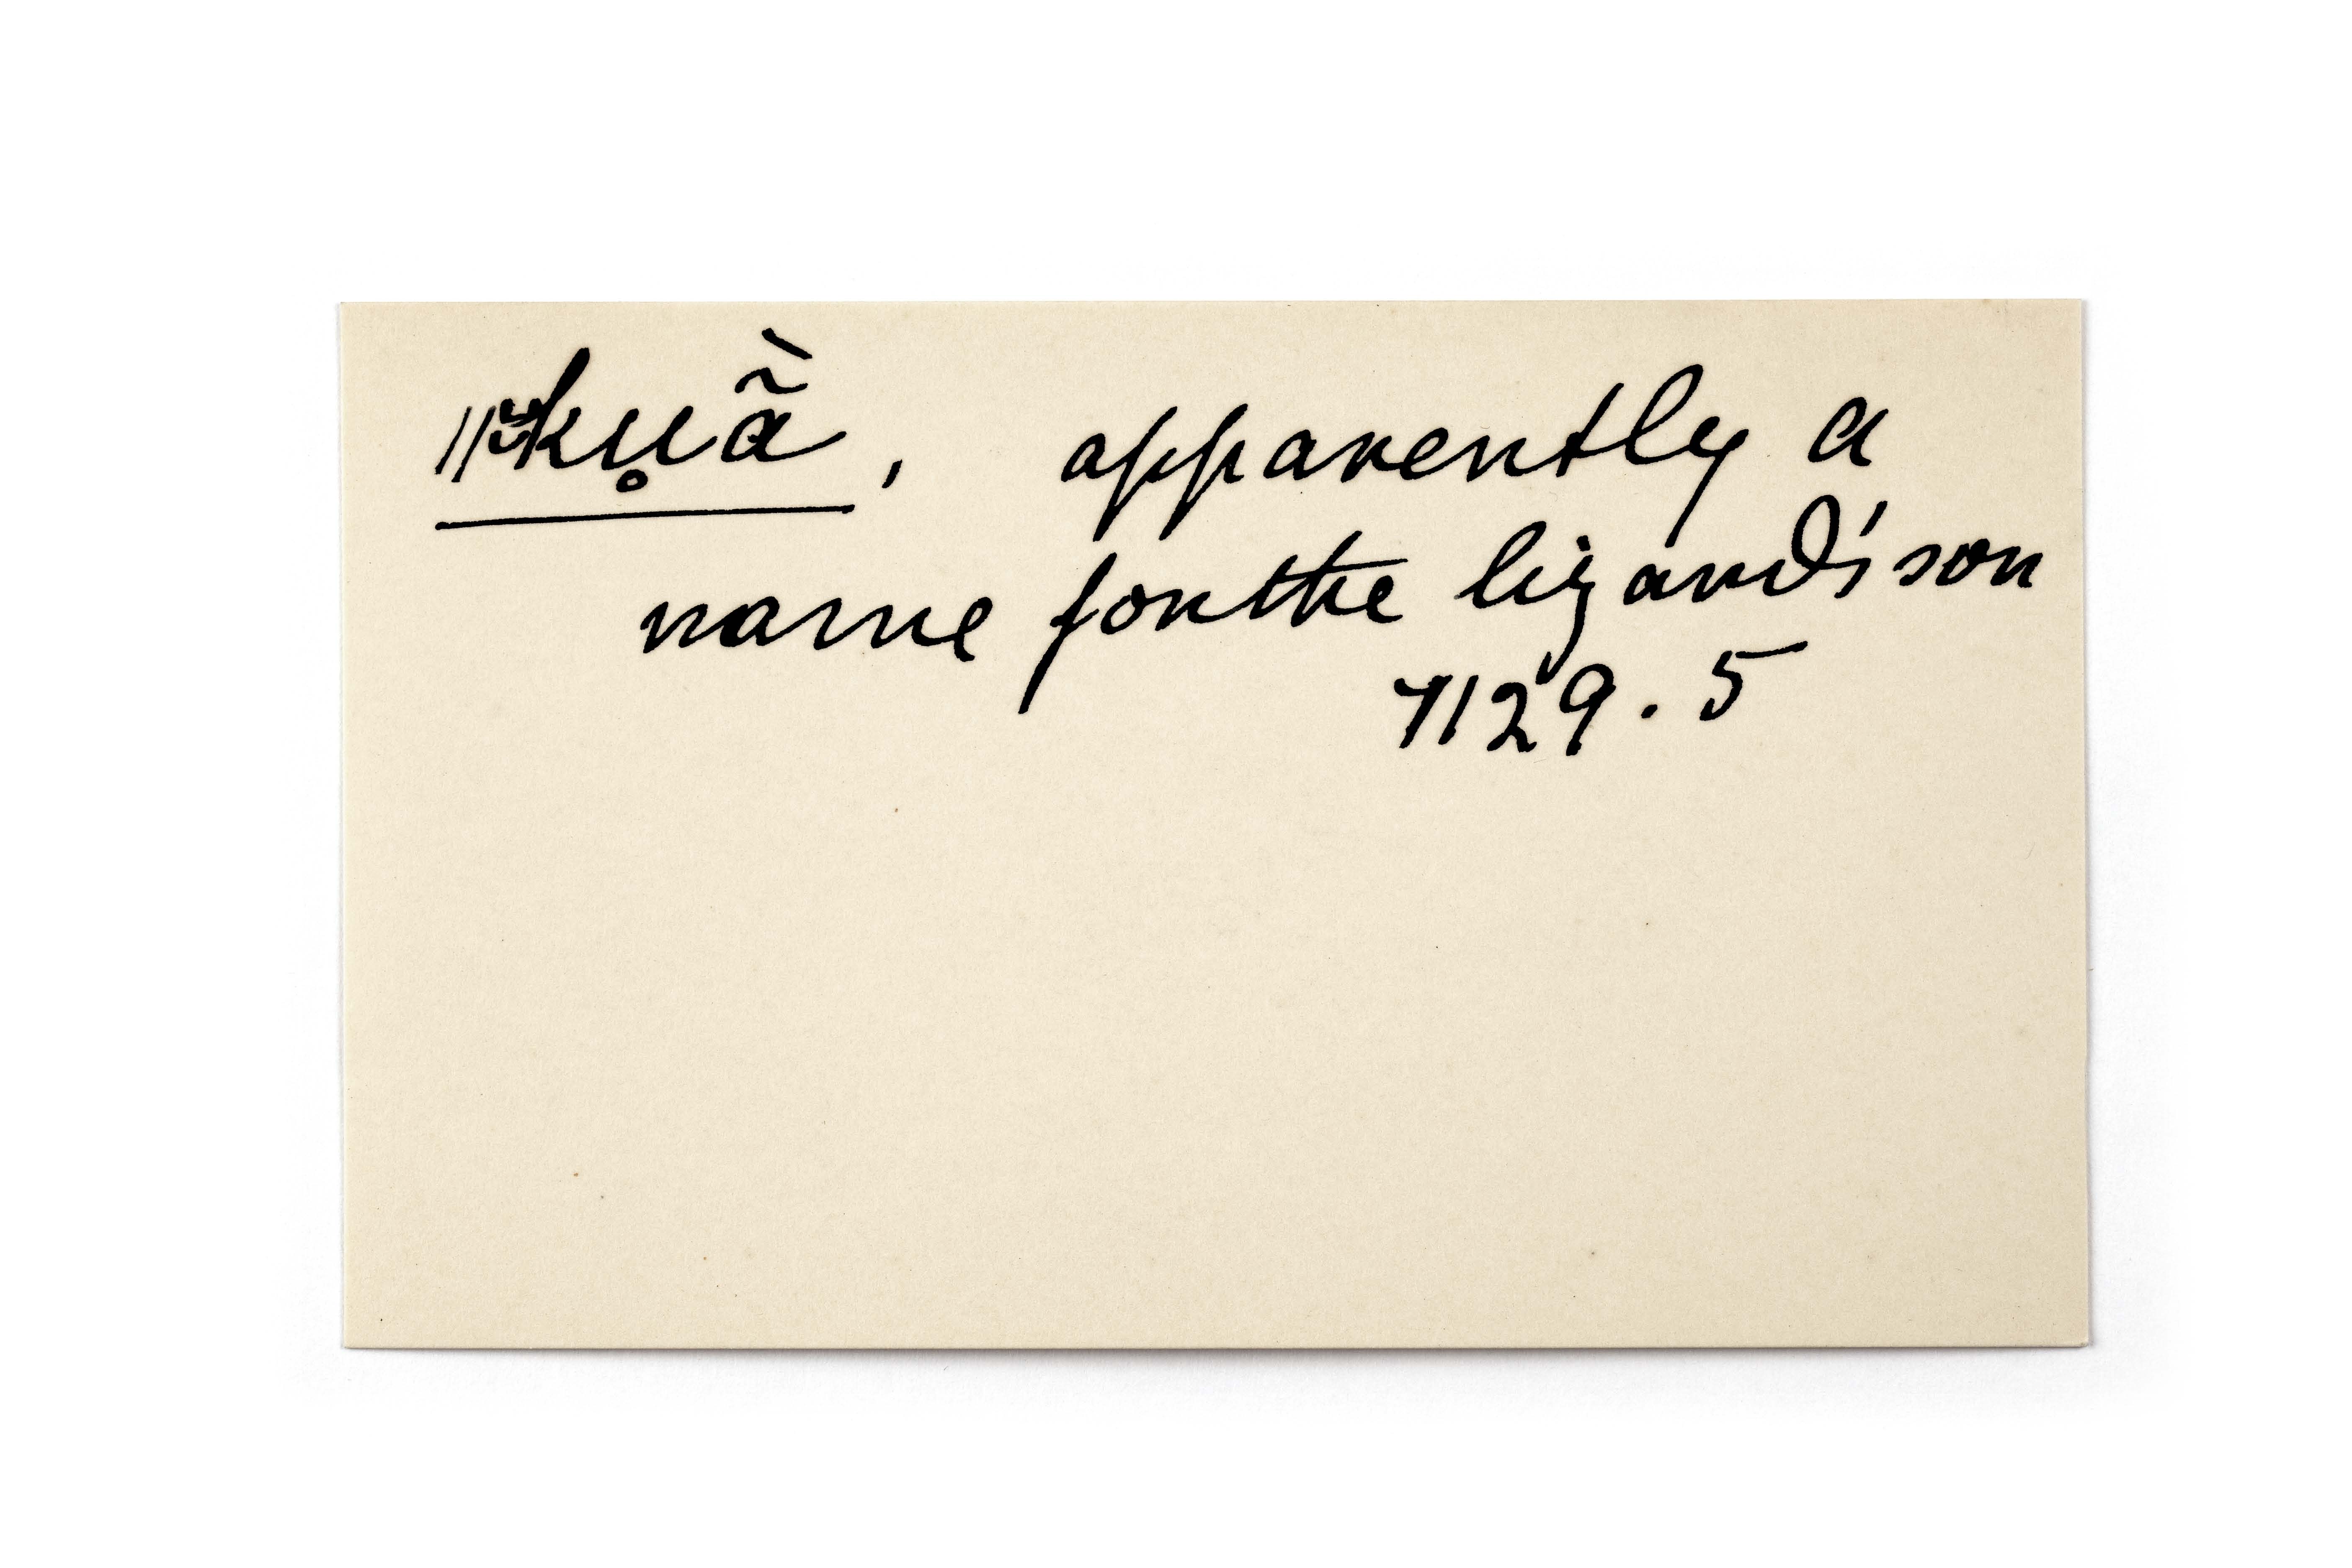 ǁkụã̀, apparently a
name for the lizard's son
7129.5